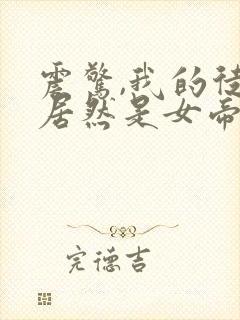 震惊,我的徒
居然是女帝
完德吉